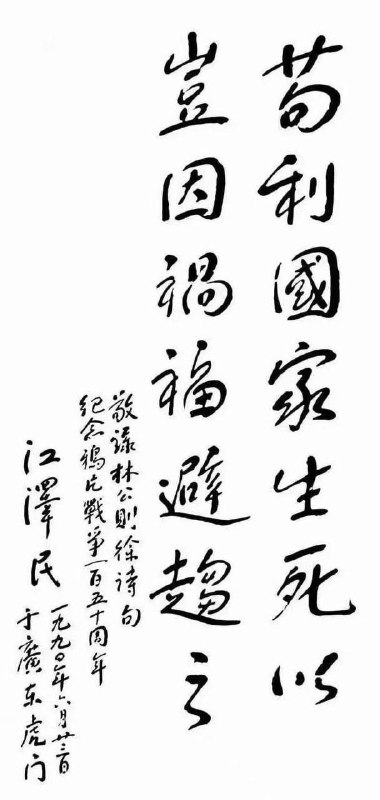 苟利國家生死以
豈因禍福避趨之
敬录林公則徐詩句
紀念鴉片戰爭一百五十周年
江澤民
一九九〇年六月廿三日
于廣东虎门